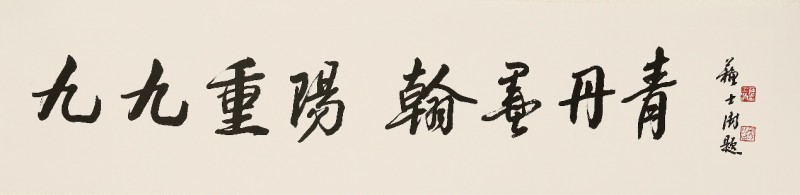 九九重陽 翰墨丹青
蘇士澍題